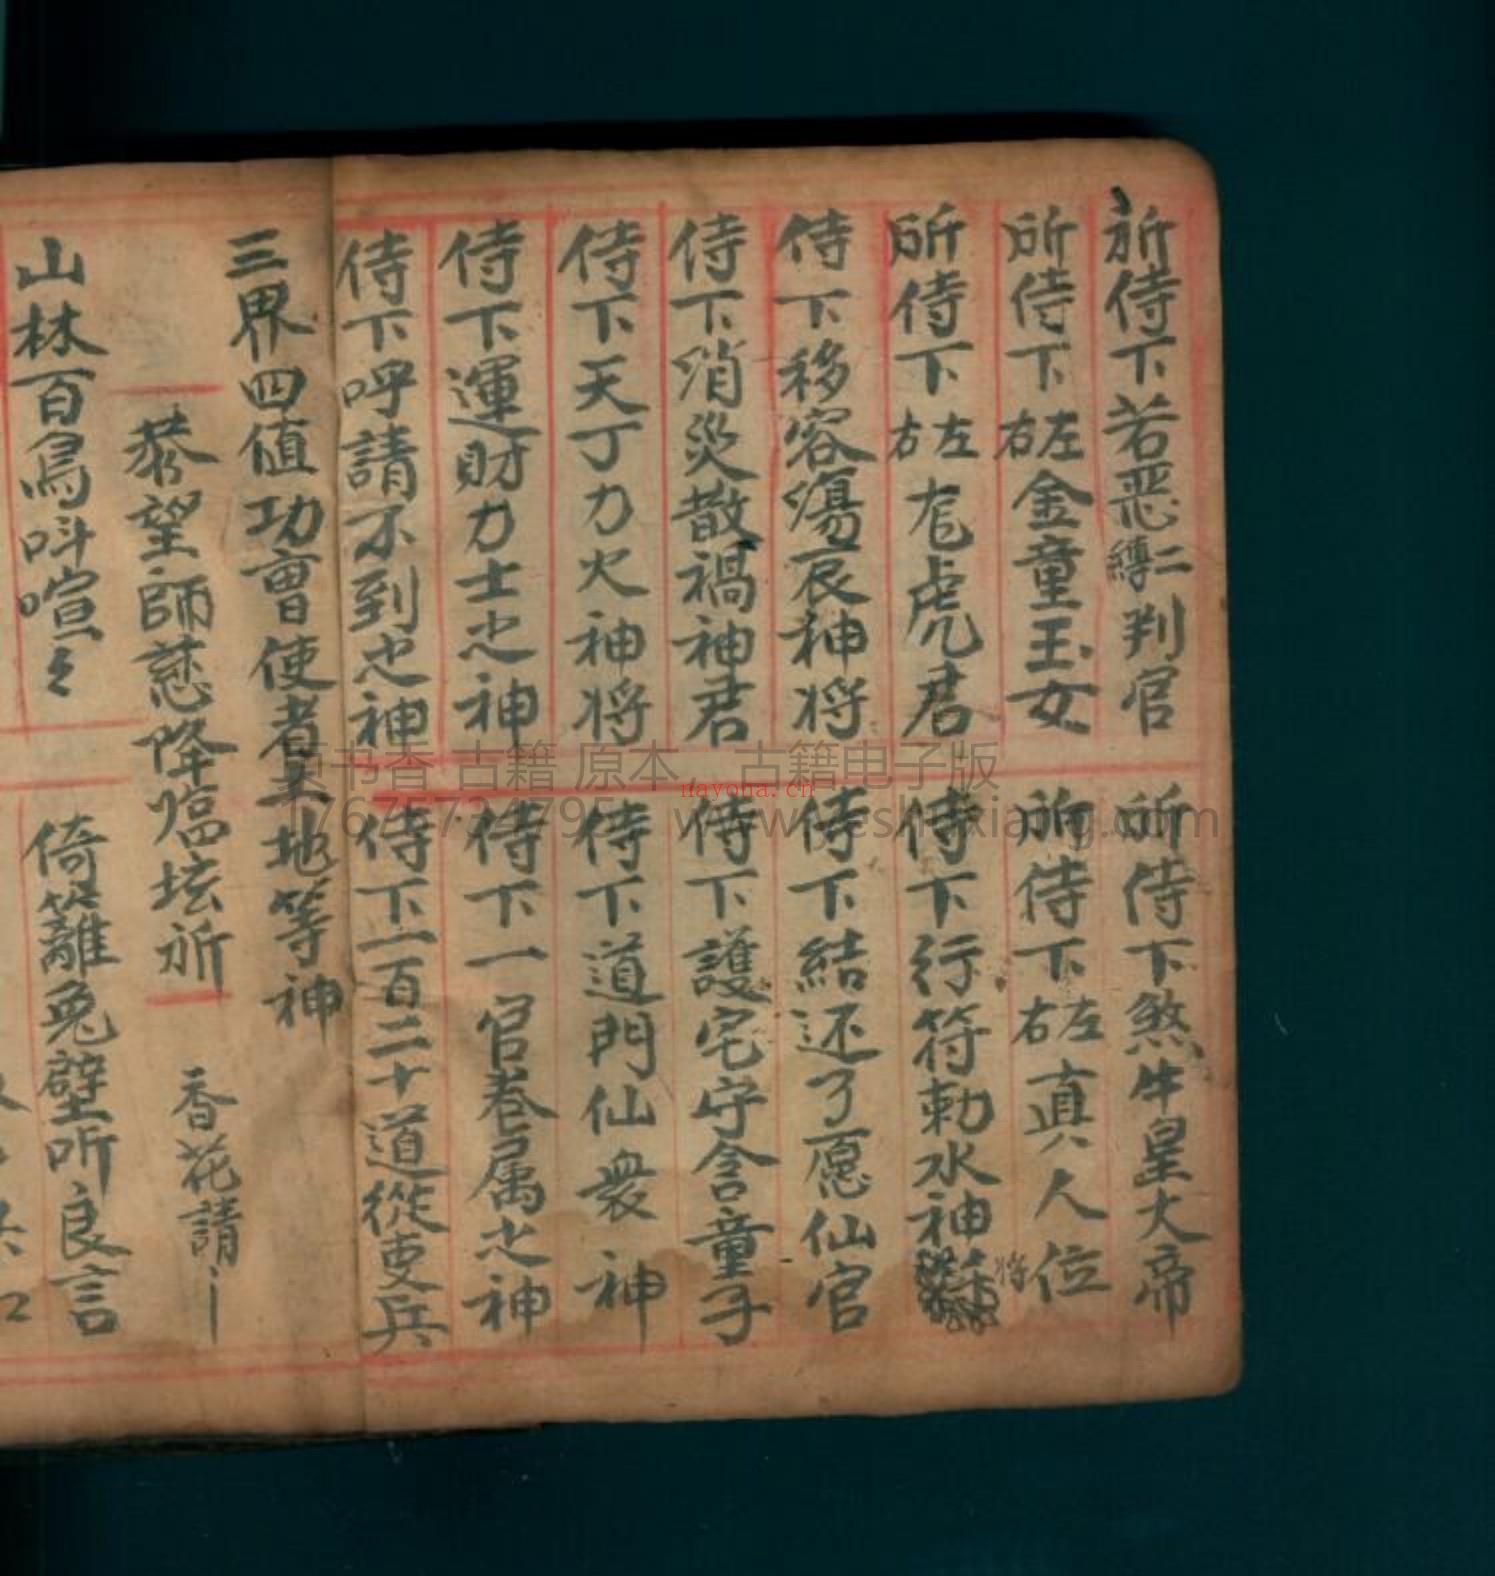 所侍下若恶二縛判官
所侍下煞牛皇大帝
所侍下左右金童玉女
所侍下左右真人位
将
所侍下左右龙虎君
侍下行符勅水神
侍下移容湯哀神将
侍下結还了愿仙官
侍下消災散禍神君
侍下護宅守舍童子
侍下天丁力火神将
侍下道門仙衆神
侍下運財力士之神
侍下一官卷属之神
侍下呼請不到之神
侍下一百二十道從吏兵
三界四值功曹使者土地等神
恭望師慈降临坛所
香花請
山林百鳥呌喧々
倚籬兔壁听良言
书香 古籍 原本，古籍电子版
nayona.cn